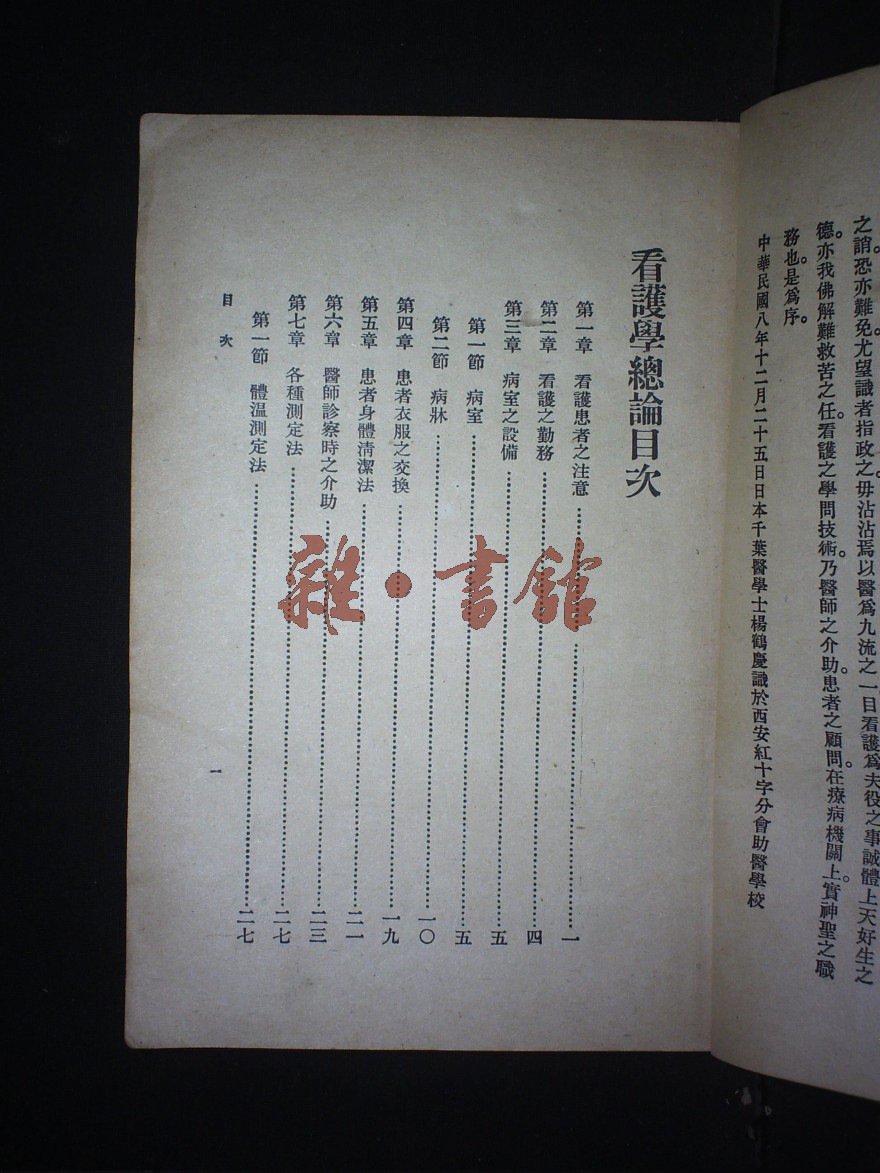 之誚。恐亦難免。尤望識者指政之。毋沾沾焉以醫爲九流之一。目看護爲夫役之事。誠體上天好生之
德。亦我佛解難救苦之任。看護之學問技術。乃醫師之介助。患者之顧問。在療病機關上。實神聖之職
務也。是爲序。
中華民國八年十二月二十五日日本千葉醫學士楊鶴慶識於西安紅十字分會助醫學校
看護學總論目次
第一章 看護患者之注意……一
第二章 看護之勤務……四
第三章 病室之設備……五
第一節 病室……五
第二節 病牀……一〇
第四章 患者衣服之交換……一九
第五章 患者身體清潔法……二一
第六章 醫師診察時之介助……二三
第七章 各種測定法……二七
第一節 體温測定法……二七
目次
一
雜·書館